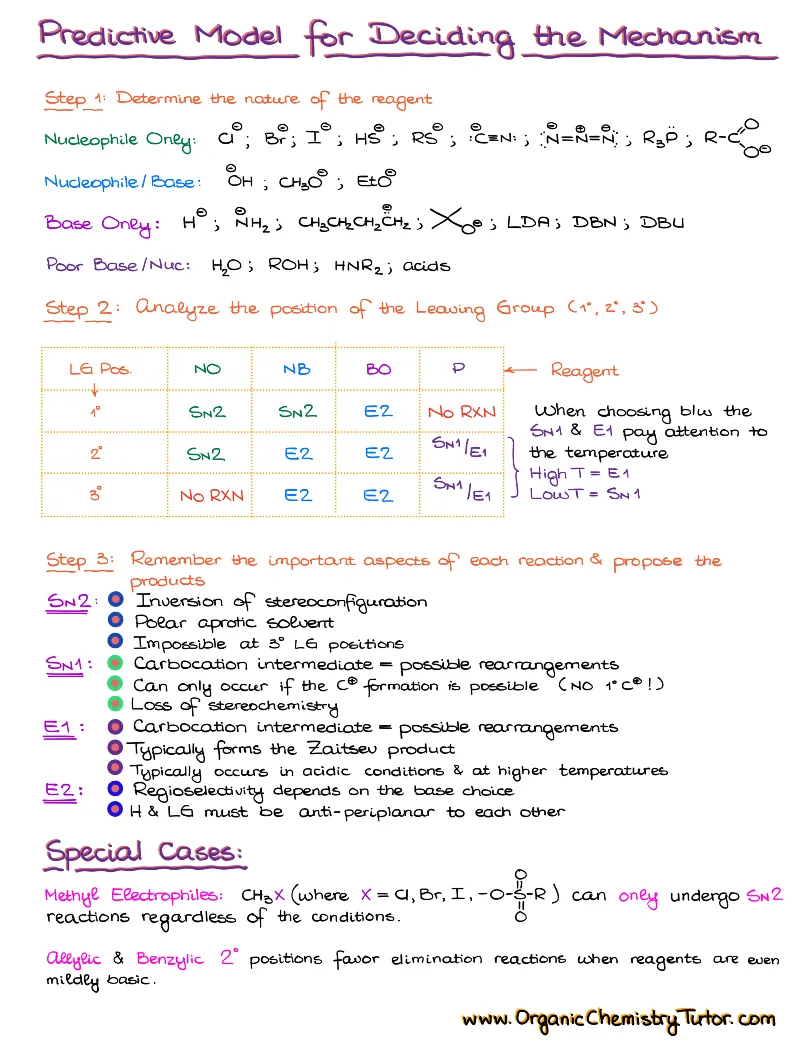 Predictive Model for Deciding the Mechanism
Step 1: Determine the nature of the reagent
Nucleophile Only: Cl⊖ ; Br⊖ ; I⊖ ; HS⊖ ; RS⊖ ; :C⊖≡N: ; :N⊖=N⊕=N⊖: ; R₃P̈ ; R-C O O⊖
Nucleophile/Base: ⊖OH ; CH₃O⊖ ; EtO⊖
Base Only: H⊖ ; ⊖NH₂ ; CH₃CH₂CH₂C̈⊖H₂ ; O⊖ ; LDA ; DBN ; DBU
Poor Base/Nuc: H₂O ; ROH ; HNR₂ ; acids
Step 2: Analyze the position of the Leaving Group (1°, 2°, 3°)
LG Pos. NO NB BO P ← Reagent
1° SN2 SN2 E2 No RXN
2° SN2 E2 E2 SN1/E1
3° No RXN E2 E2 SN1/E1
When choosing b/w the
SN1 & E1 pay attention to
the temperature
High T = E1
Low T = SN1
Step 3: Remember the important aspects of each reaction & propose the
products
SN2: Inversion of stereoconfiguration
Polar aprotic solvent
Impossible at 3° LG positions
SN1: Carbocation intermediate = possible rearrangements
Can only occur if the C⊕ formation is possible (NO 1°C⊕!)
Loss of stereochemistry
E1: Carbocation intermediate = possible rearrangements
Typically forms the Zaitsev product
Typically occurs in acidic conditions & at higher temperatures
E2: Regioselectivity depends on the base choice
H & LG must be anti-periplanar to each other
Special Cases:
Methyl Electrophiles: CH₃X (where X = Cl, Br, I, -O-S(=O)(=O)-R) can only undergo SN2
reactions regardless of the conditions.
Allylic & Benzylic 2° positions favor elimination reactions when reagents are even
mildly basic.
www.OrganicChemistryTutor.com